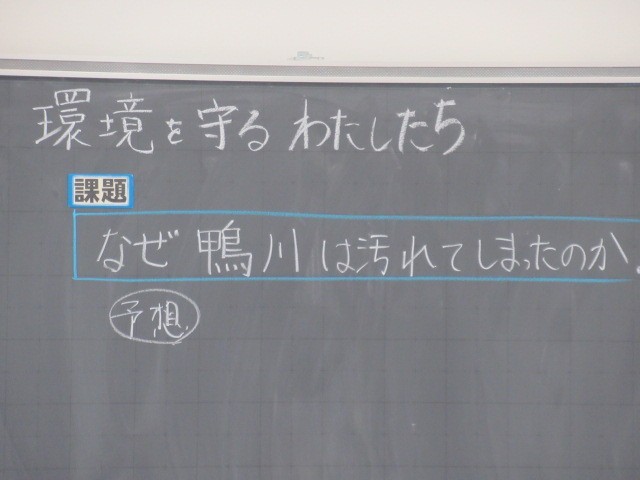 環境を守るわたしたち
課題
なぜ鴨川は汚れてしまったのか。
予想